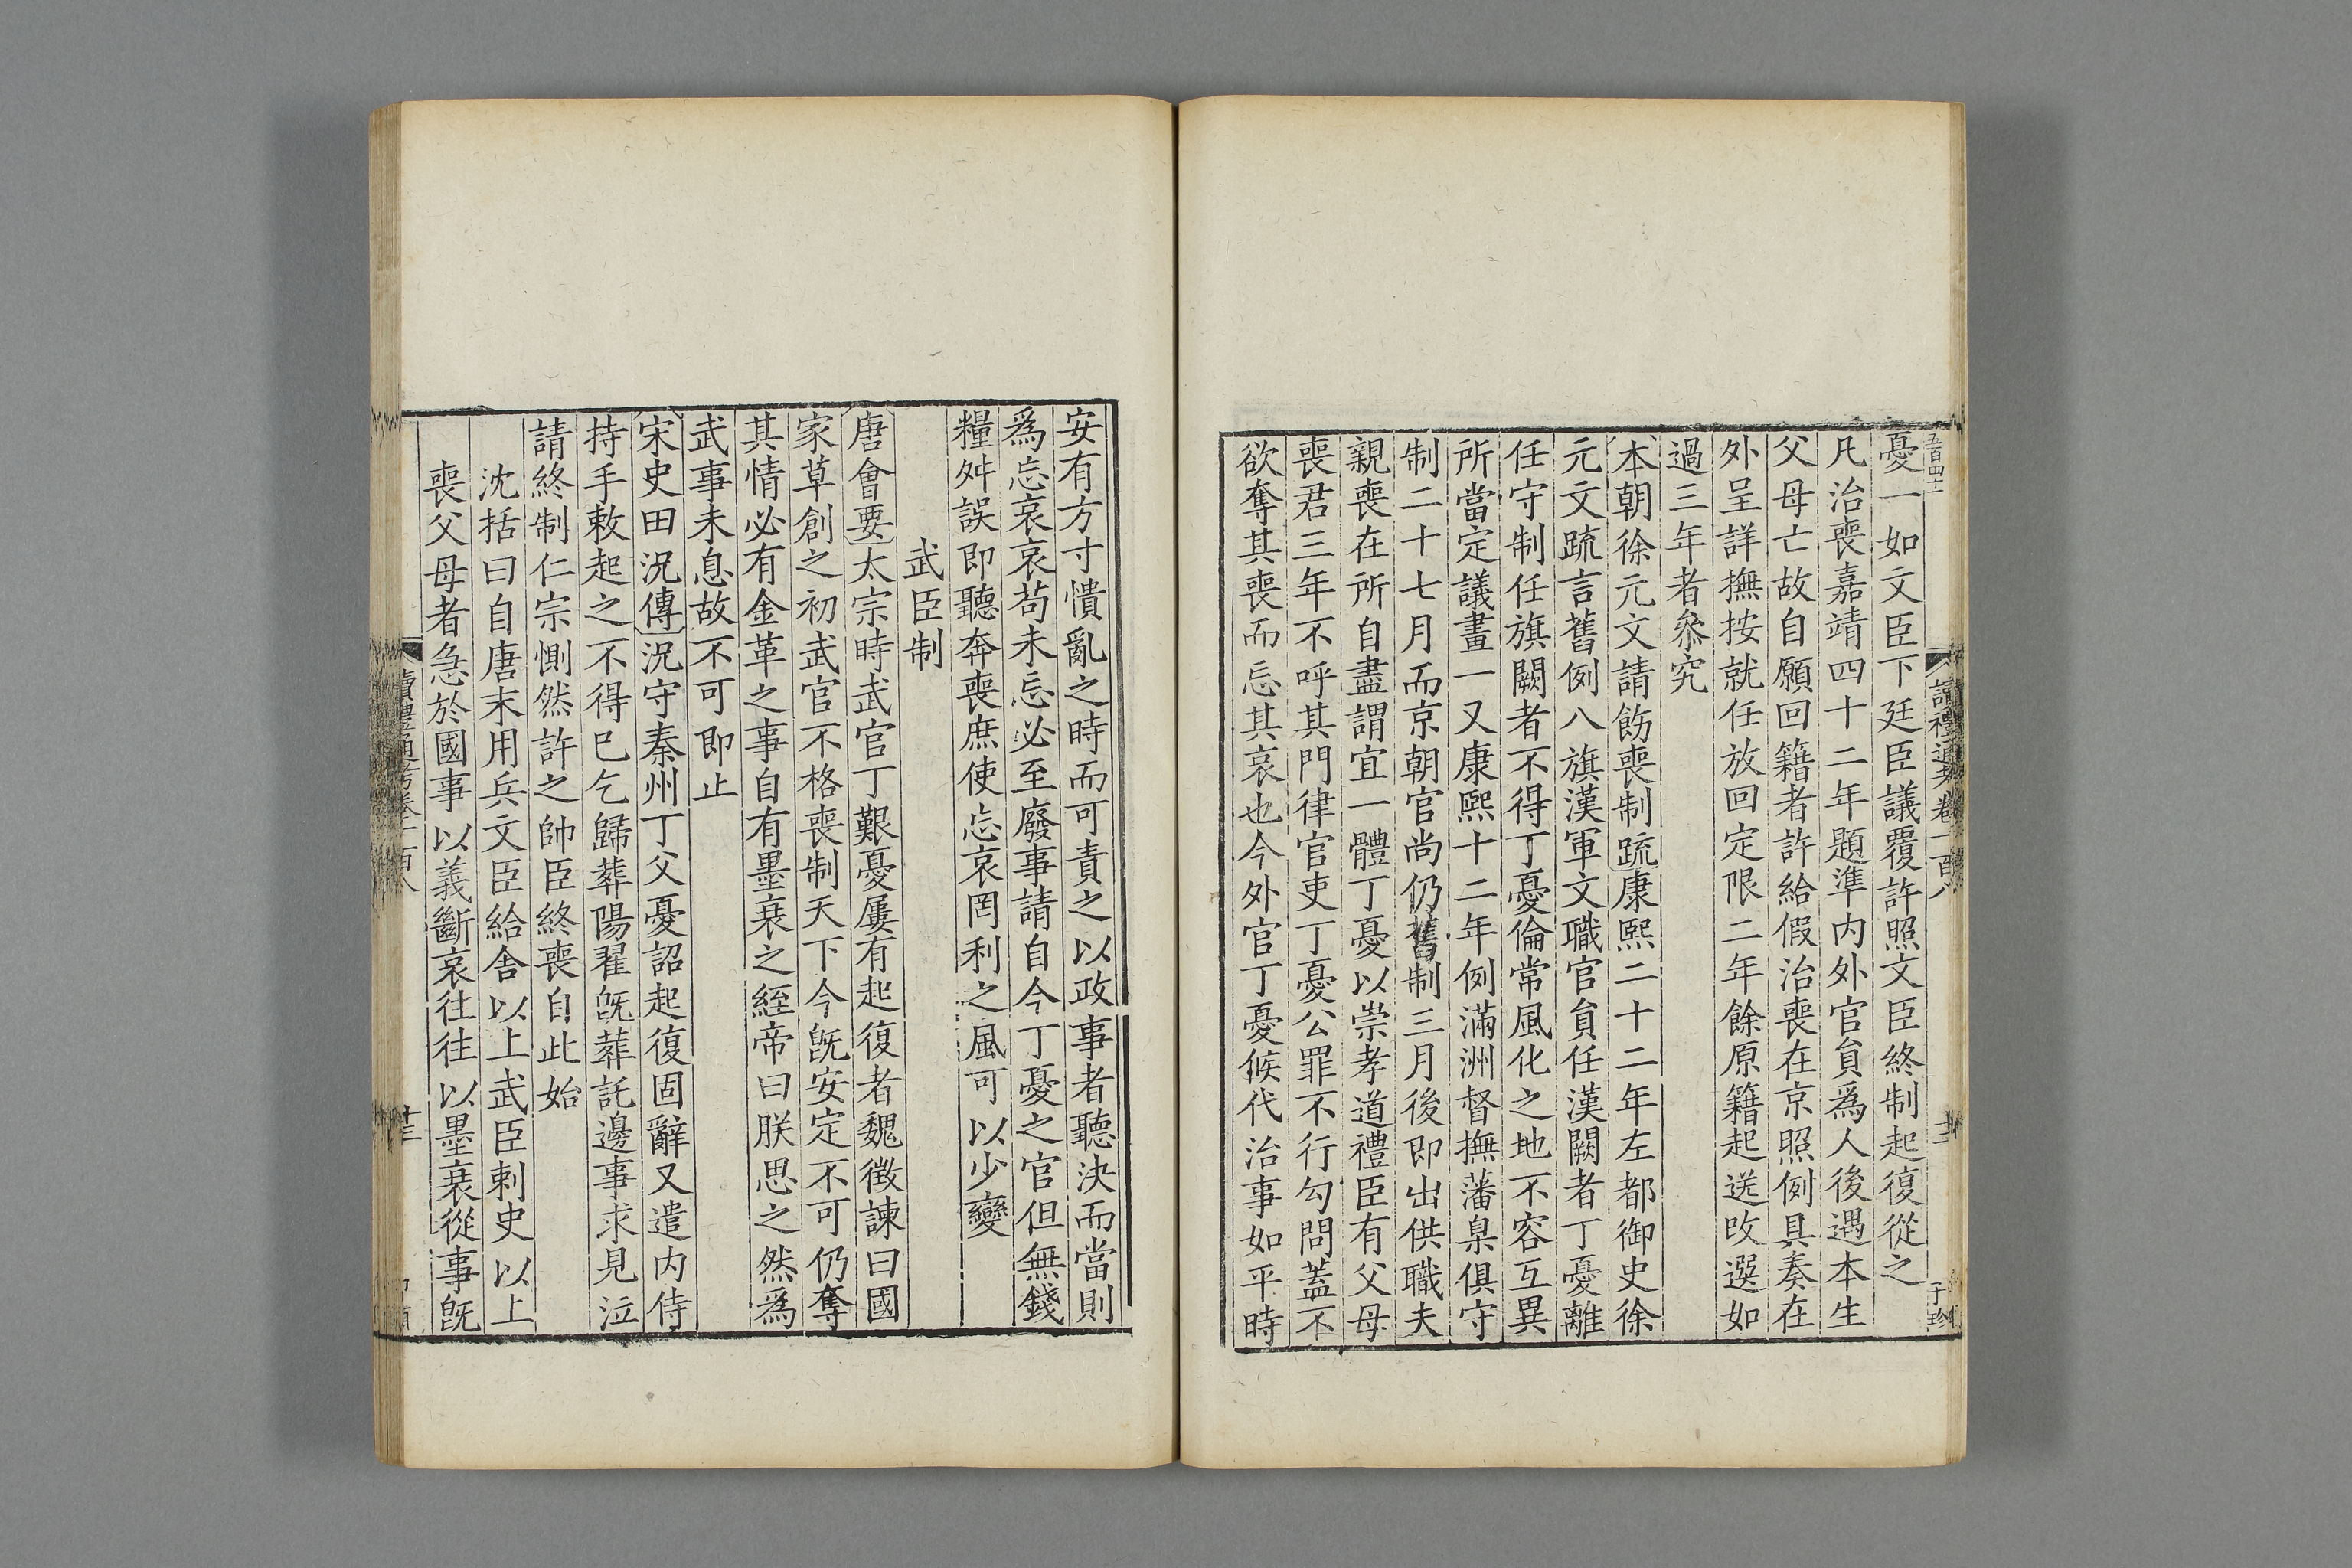 憂一如文臣下廷臣議覆許照文臣終制起復從之
凡治喪嘉靖四十二年題準内外官員爲人後遇本生
父母亡故自願回籍者許給假治喪在京照例具奏在
外呈詳撫按就任放回定限二年餘原籍起送改選如
過三年者叅究
本朝徐元文請飭喪制疏康熙二十二年左都御史徐
元文疏言舊例八旗漢軍文職官員任漢闕者丁憂離
任守制任旗闕者不得丁憂倫常風化之地不容互異
所當定議畫一又康熙十二年例滿洲督撫藩臬俱守
制二十七月而京朝官尚仍舊制三月後即出供職夫
親喪在所自盡謂宜一體丁憂以崇孝道禮臣有父母
喪君三年不呼其門律官吏丁憂公罪不行勾問蓋不
欲奪其喪而忘其哀也今外官丁憂候代治事如平時
安有方寸憒亂之時而可責之以政事者聽決而當則
爲忘哀哀苟未忘必至廢事請自今丁憂之官但無錢
糧舛誤即聽奔喪庶使忘哀罔利之風可以少變
武臣制
唐會要太宗時武官丁艱憂屢有起復者魏徵諫曰國
家草創之初武官不格喪制天下今旣安定不可仍奪
其情必有金革之事自有墨衰之絰帝曰朕思之然爲
武事未息故不可即止
宋史田況傳況守秦州丁父憂詔起復固辭又遣内侍
持手敕起之不得已乞歸葬陽翟旣葬託邊事求見泣
請終制仁宗惻然許之帥臣終喪自此始
沈括曰自唐末用兵文臣給舍以上武臣刺史以上
喪父母者急於國事以義斷哀往往以墨衰從事旣
讀禮通考卷一百八
十二
子珍
五百四十二
讀禮通考卷一百八
十三